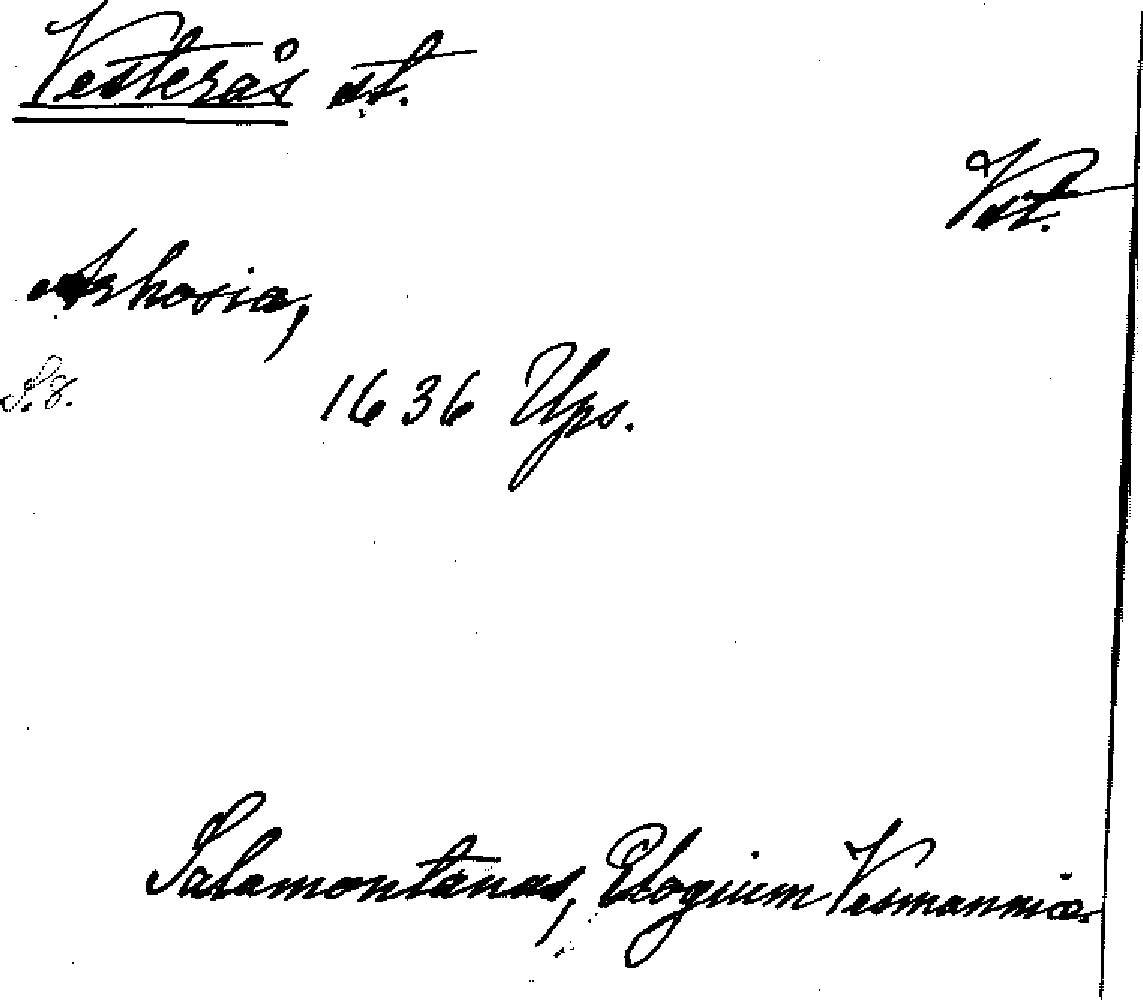 Vesterås st.
Vst.
Arhosia,
1636 Ups.
Salamontanus, Elogium Vesmanniæ